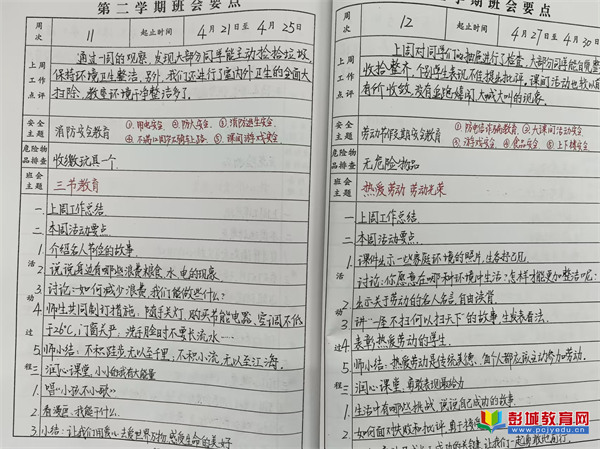 第二学期班会要点
周次 11 起止时间 4月21日至4月25日
上周工作点评
通过一周的观察,发现大部分同学能主动捡拾垃圾,
保持环境卫生整洁。另外,我们还进行了室内外卫生的全面大
扫除,教室环境干净整洁多了。
安全主题 消防安全教育 ①用电安全 ②防火安全 ③消防逃生安全
⑤课间游戏安全
危险物品排查 收缴玩具一个
班会主题 三节教育
活动过程
一、上周工作总结
二、本周活动要点
1. 介绍名人节俭的故事
2. 说说身边有哪些浪费粮食、水、电的现象
3. 讨论:如何减少浪费,我们能做些什么?
4. 师生共同制订措施,随手关灯,购买节能电器,空调不低
于26℃,门窗关严,洗手脸时不要长流水……
5. 师小结:不积跬步无以至千里;不积小流,无以至江海。
三、润心课堂,小小的我有大能量
1. 唱“小孩不小歌”
2. 看漫画,我能干什么
3. 小结:让我们用爱心去爱世界万物,感受生命的美好
学期班会要点
周次 12 起止时间 4月27日至4月30日
上周工作点评
上周对同学们的抽屉进行了检查,大部分同学能自觉整
收拾整齐,个别学生表现不佳提出批评。课间活动也较以前
有价收敛,没有追逐嬉闹、大喊大叫的现象。
安全主题 劳动节假期安全教育 ①防电信诈骗教育 ②大课间活动安全
③游戏安全 ④食品安全 ⑤上下楼安全
危险物品排查 无危险物品
班会主题 热爱劳动 劳动光荣
活动过程
一、上周工作总结
二、本周活动要点
1. 课件出示一些家庭环境的照片,生各抒己见
讨论:你愿意在哪种环境中生活?怎样才能更加整洁呢?
2. 出示关于劳动的名人名言,自由读背
3. 讲“一屋不扫何以扫天下”的故事,生发表看法
4. 表彰热爱劳动的学生
5. 师小结:热爱劳动是传统美德,每个人都应该主动参加劳动。
三、润心课堂,勇敢表现最给力
1. 生活中有哪些挑战,说说自己成功的故事
2. 如何面对失败和批评,勇于
彭城教育网
www.pcjyedu.cn